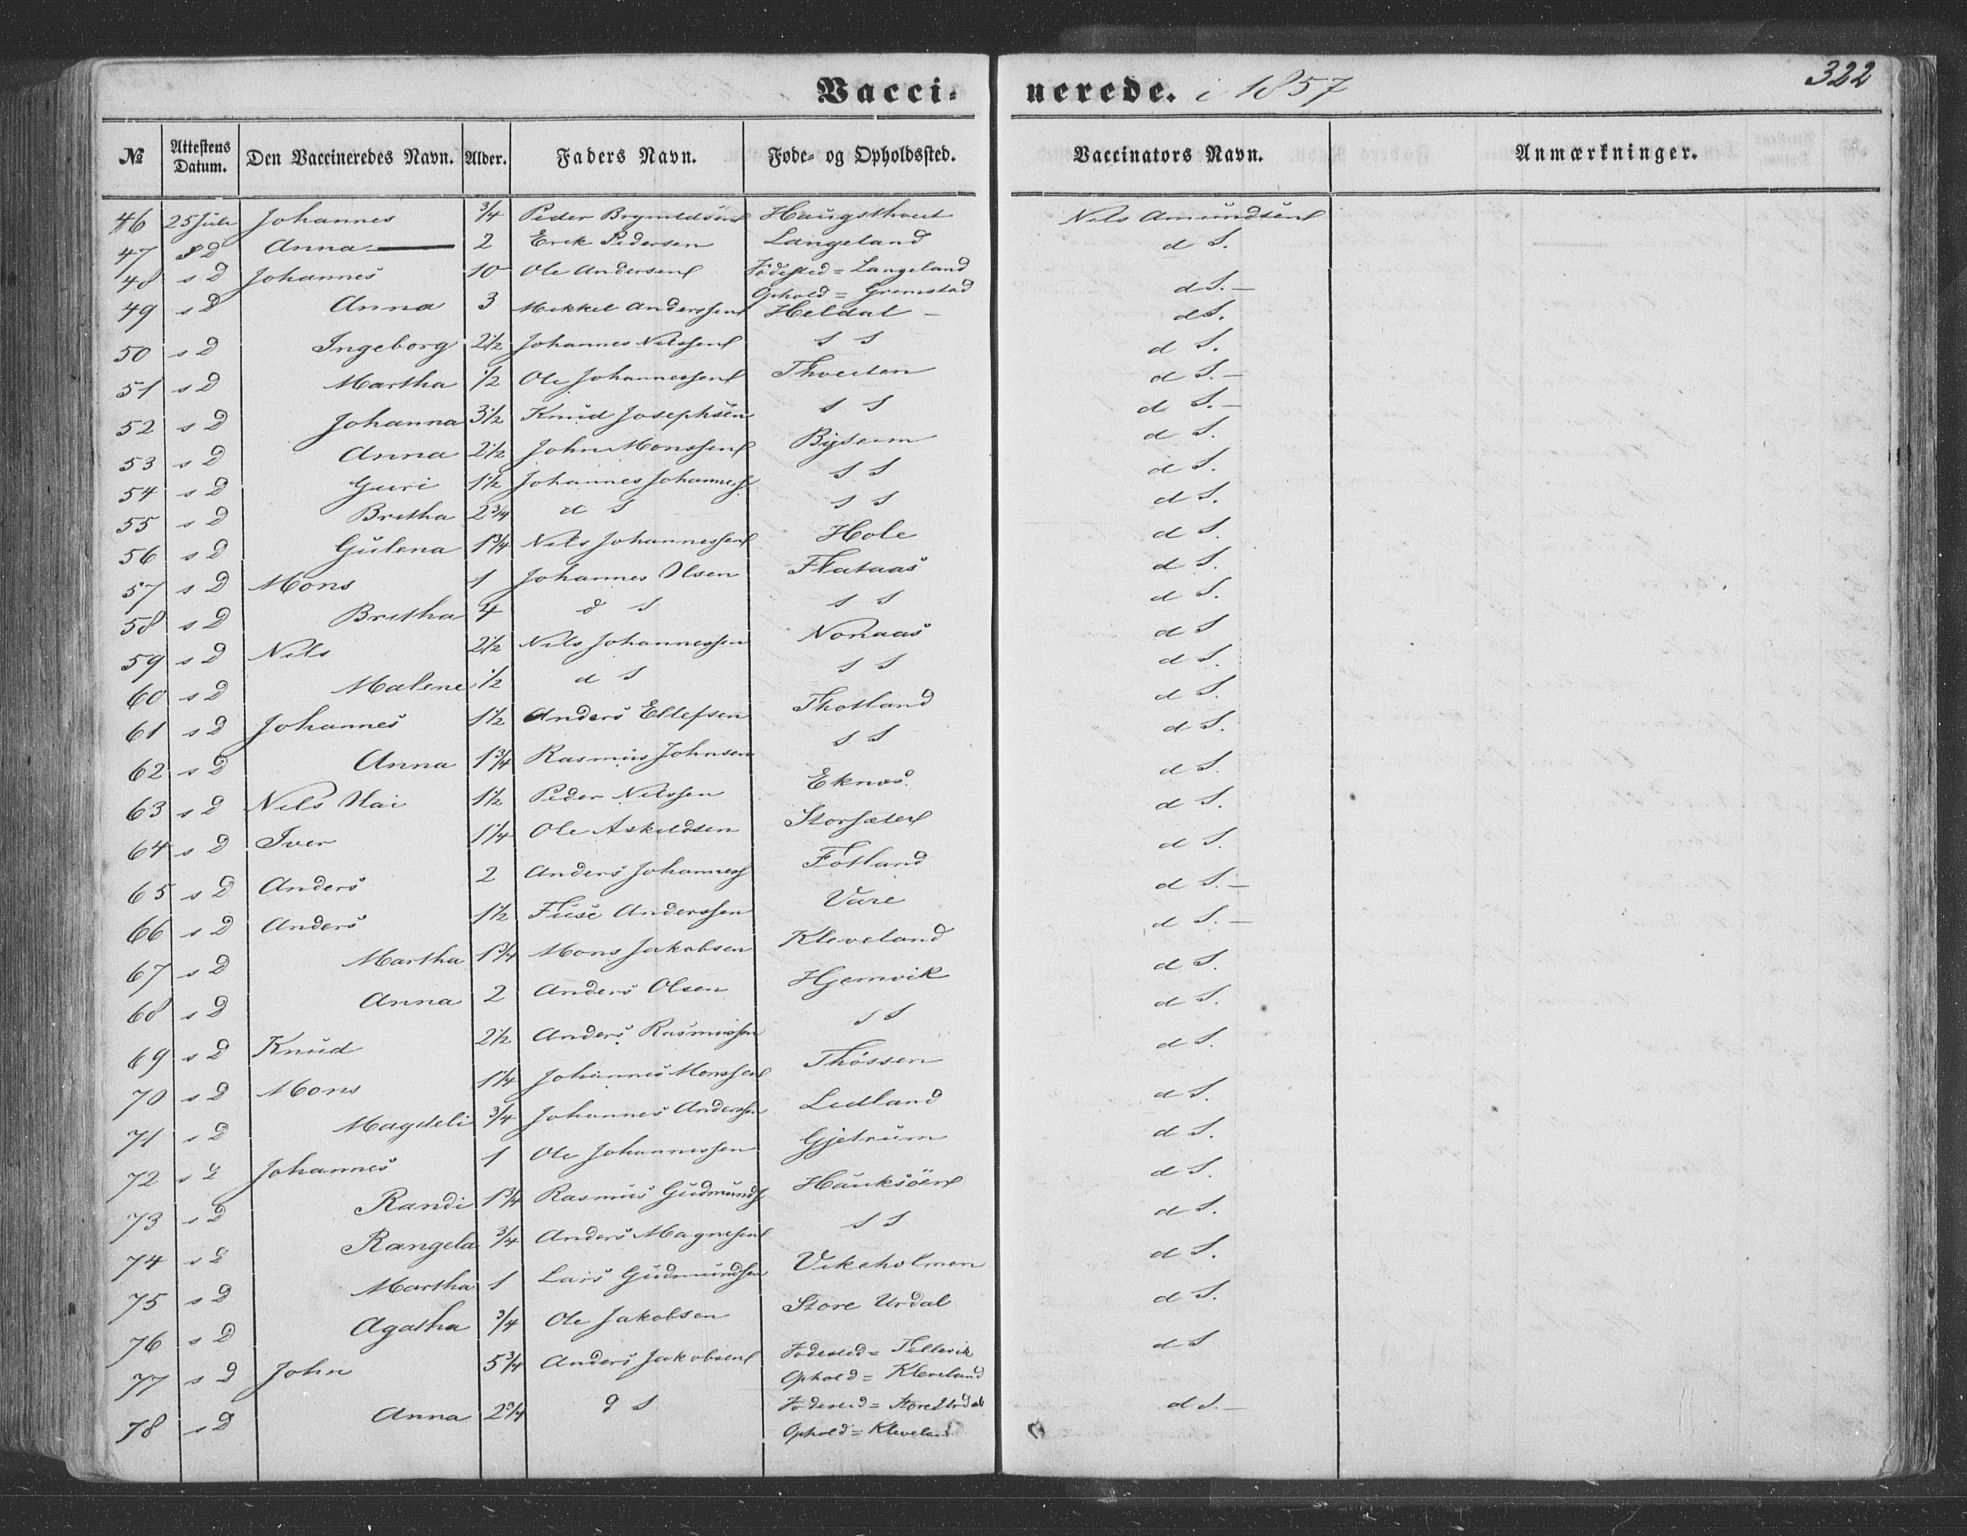 322
Vaccinerede. i 1857
№ Attestens Datum. Den Vaccineredes Navn. Alder. Faders Navn. Føde- og Opholdssted. Vaccinators Navn. Anmærkninger.
46 25 Juli Johannes 3/4 Peder Haugsthvet Nils Amundsen
47 s D Anna 2 Erik Pedersen Langeland d S.
48 s D Johannes 10 Ole Andersen Fødested = Langeland d S.
Ophold = Gremstad
49 s D Anna 3 Mikkel Anderssen Heldal d S.
50 s D Ingeborg 2 1/2 Johannes Nilssen s S d S.
51 s D Martha 1/2 Ole Johannessen Thveiten d S.
52 s D Johanna 3 1/2 Knud Josephsen s S d S.
53 s D Anna 2 1/2 John Monssen Bysem d S.
54 s D Guri 1 1/2 Johannes Johannes s S d S.
55 s D Britha 2 3/4 d S s S d S.
56 s D Gulena 1 3/4 Nils Johannessen Hole d S.
57 s D Mons 1 Johannes Olsen Flataas d S.
58 s D Britha 4 d S s S d S.
59 s D Nils 2 1/2 Nils Johannessen Nonaas d S
60 s D Malene 1/2 d S s S d S.
61 s D Johannes 1 1/2 Anders Ellefsen Thotland d S.
62 s D Anna 1 3/4 Rasmus Johnsen s S d S.
63 s D Nils 1 1/2 Peder Nilssen Eknæs. d S.
64 s D Iver 1 1/4 Ole Askildsen Storsæter d S.
65 s D Anders 2 Anders Johanness Fotland d S.
66 s D Anders 1 1/2 Fuse Anderssen Vare d S.
67 s D Martha 1 3/4 Mons Jakobsen Kleveland d S.
68 s D Anna 2 Anders Olsen Hjemvik d S.
69 s D Knud 2 1/2 Anders Rasmussen s S d S.
70 s D Mons 1 1/4 Johannes Monssen Thøssen d S.
71 s D Magdeli 3/4 Johannes Anderssen Ledland d S.
72 s D Johannes 1 Ole Johannessen Gjetrum d S.
73 s D Randi 1 3/4 Rasmus Gudmunds Hauksøen d S.
74 s D Rangela 3/4 Anders Magnesen s S d S.
75 s D Martha 1 Lars Gudmundsen Vikeholmen d S.
76 s D Agatha 3/4 Ole Jakobsen Store Urdal d S.
77 s D John 5 3/4 Anders Jakobsen Fødested = Tellevik d S
Ophold = Kleveland
78 s D Anna 2 3/4 d S Fødested = Store Urdal d S.
Ophold = Kleveland